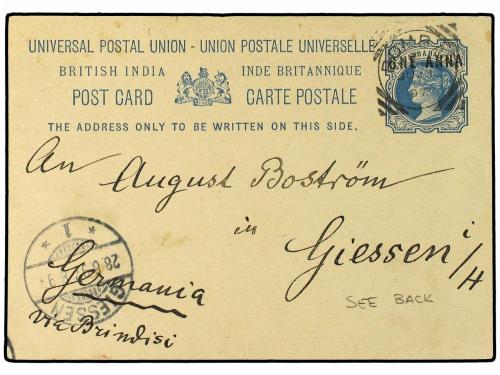 UNIVERSAL POSTAL UNION - UNION POSTALE UNIVERSELLE
BRITISH INDIA INDE BRITANNIQUE
POST CARD CARTE POSTALE
THE ADDRESS ONLY TO BE WRITTEN ON THIS SIDE.
ONE ANNA
BOMBAY
An August Boström
in
Giessen i/H
Germania
via Brindisi
SEE BACK
* 1 *
28.6
GIESSEN